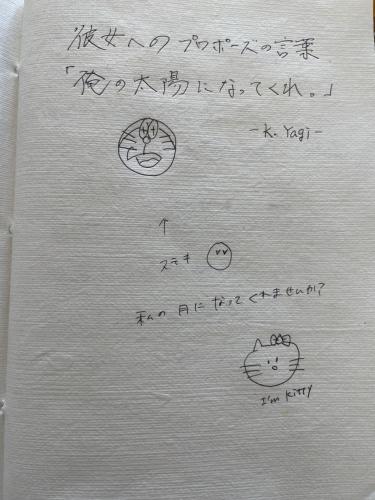 彼女へのプロポーズの言葉
「俺の太陽になってくれ。」
-K. Yagi-
↑
ステキ
私の月になってくれませんか?
I'm Kitty